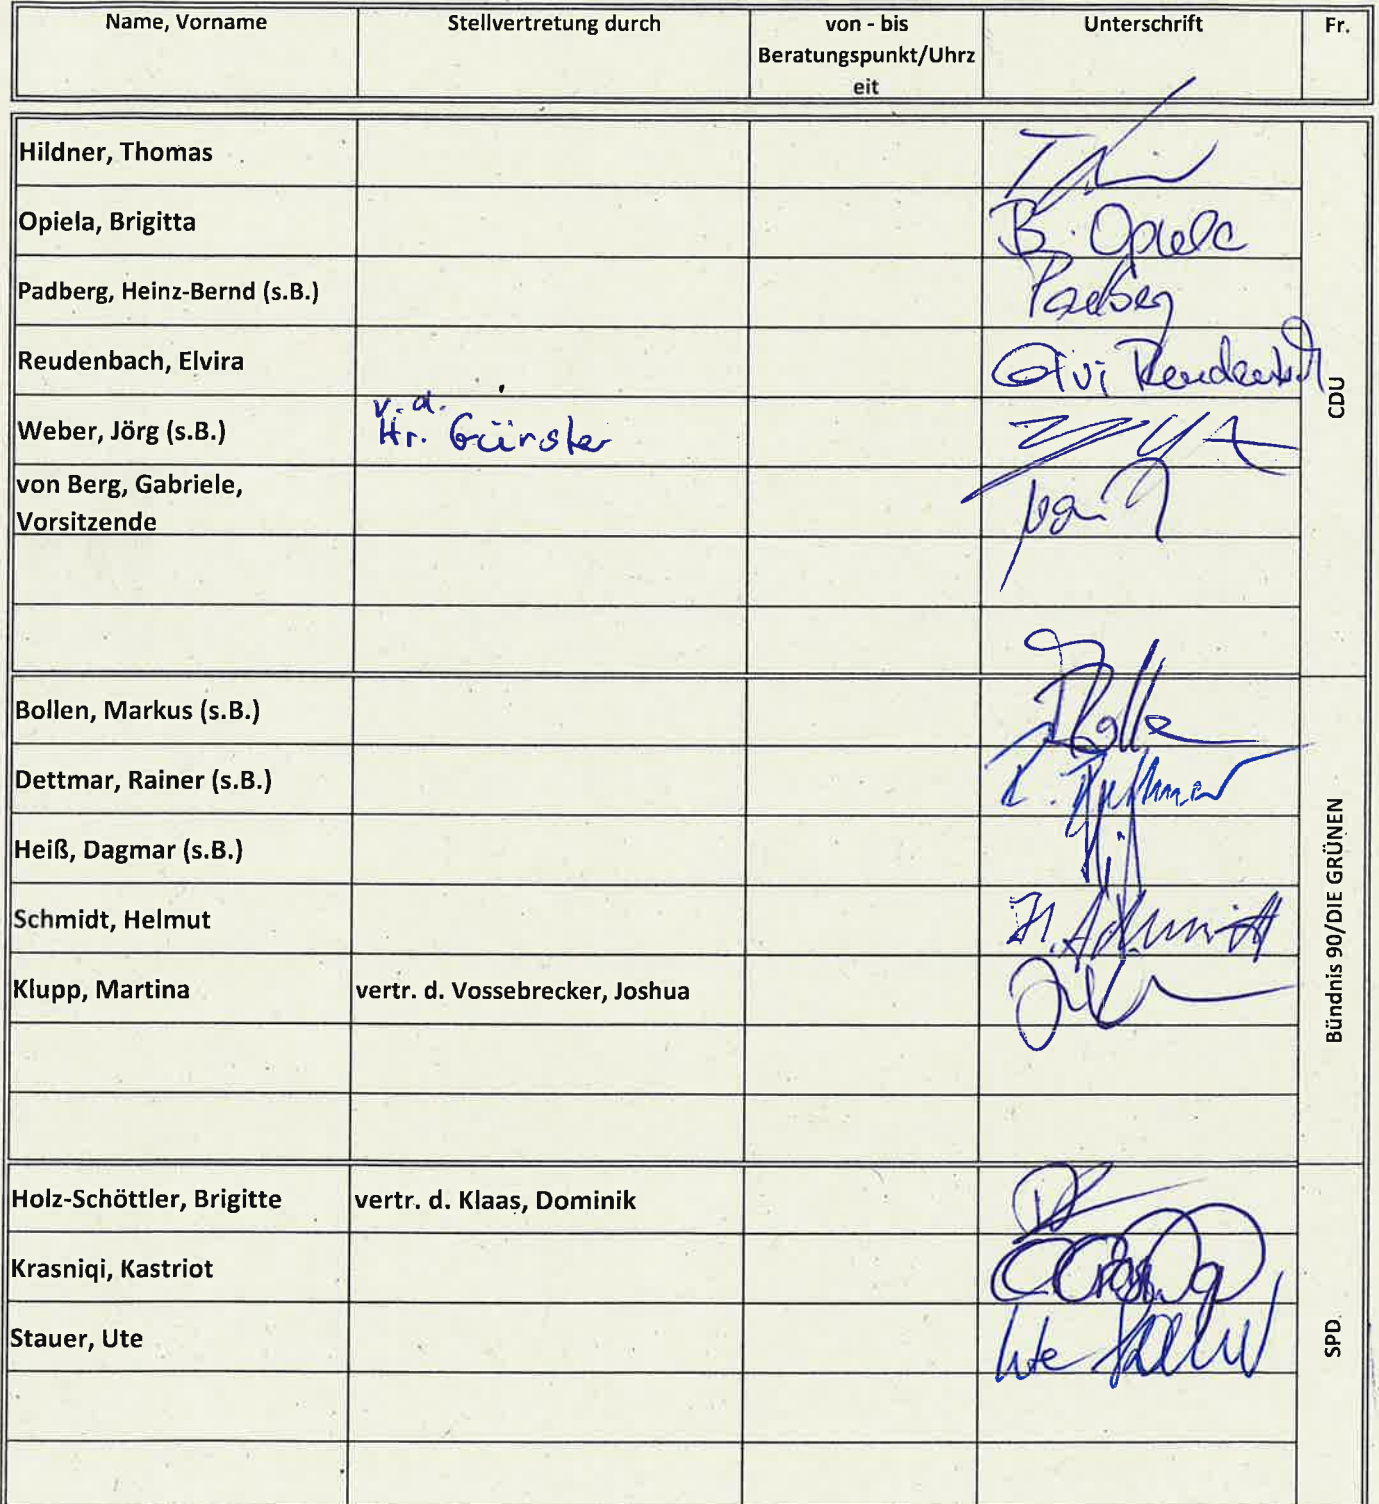 Name, Vorname
Stellvertretung durch
von - bis
Beratungspunkt/Uhrz
eit
Unterschrift
Fr.
Hildner, Thomas
Opiela, Brigitta
B. Opiela
Padberg, Heinz-Bernd (s.B.)
Padberg
Reudenbach, Elvira
Elvi Reudenbach
CDU
Weber, Jörg (s.B.)
v. d.
Hr. Günster
von Berg, Gabriele,
Vorsitzende
Bollen, Markus (s.B.)
Dettmar, Rainer (s.B.)
R. Dettmar
Heiß, Dagmar (s.B.)
Schmidt, Helmut
H. Schmidt
Klupp, Martina
vertr. d. Vossebrecker, Joshua
Bündnis 90/DIE GRÜNEN
Holz-Schöttler, Brigitte
vertr. d. Klaas, Dominik
Krasniqi, Kastriot
Stauer, Ute
Ute Stauer
SPD